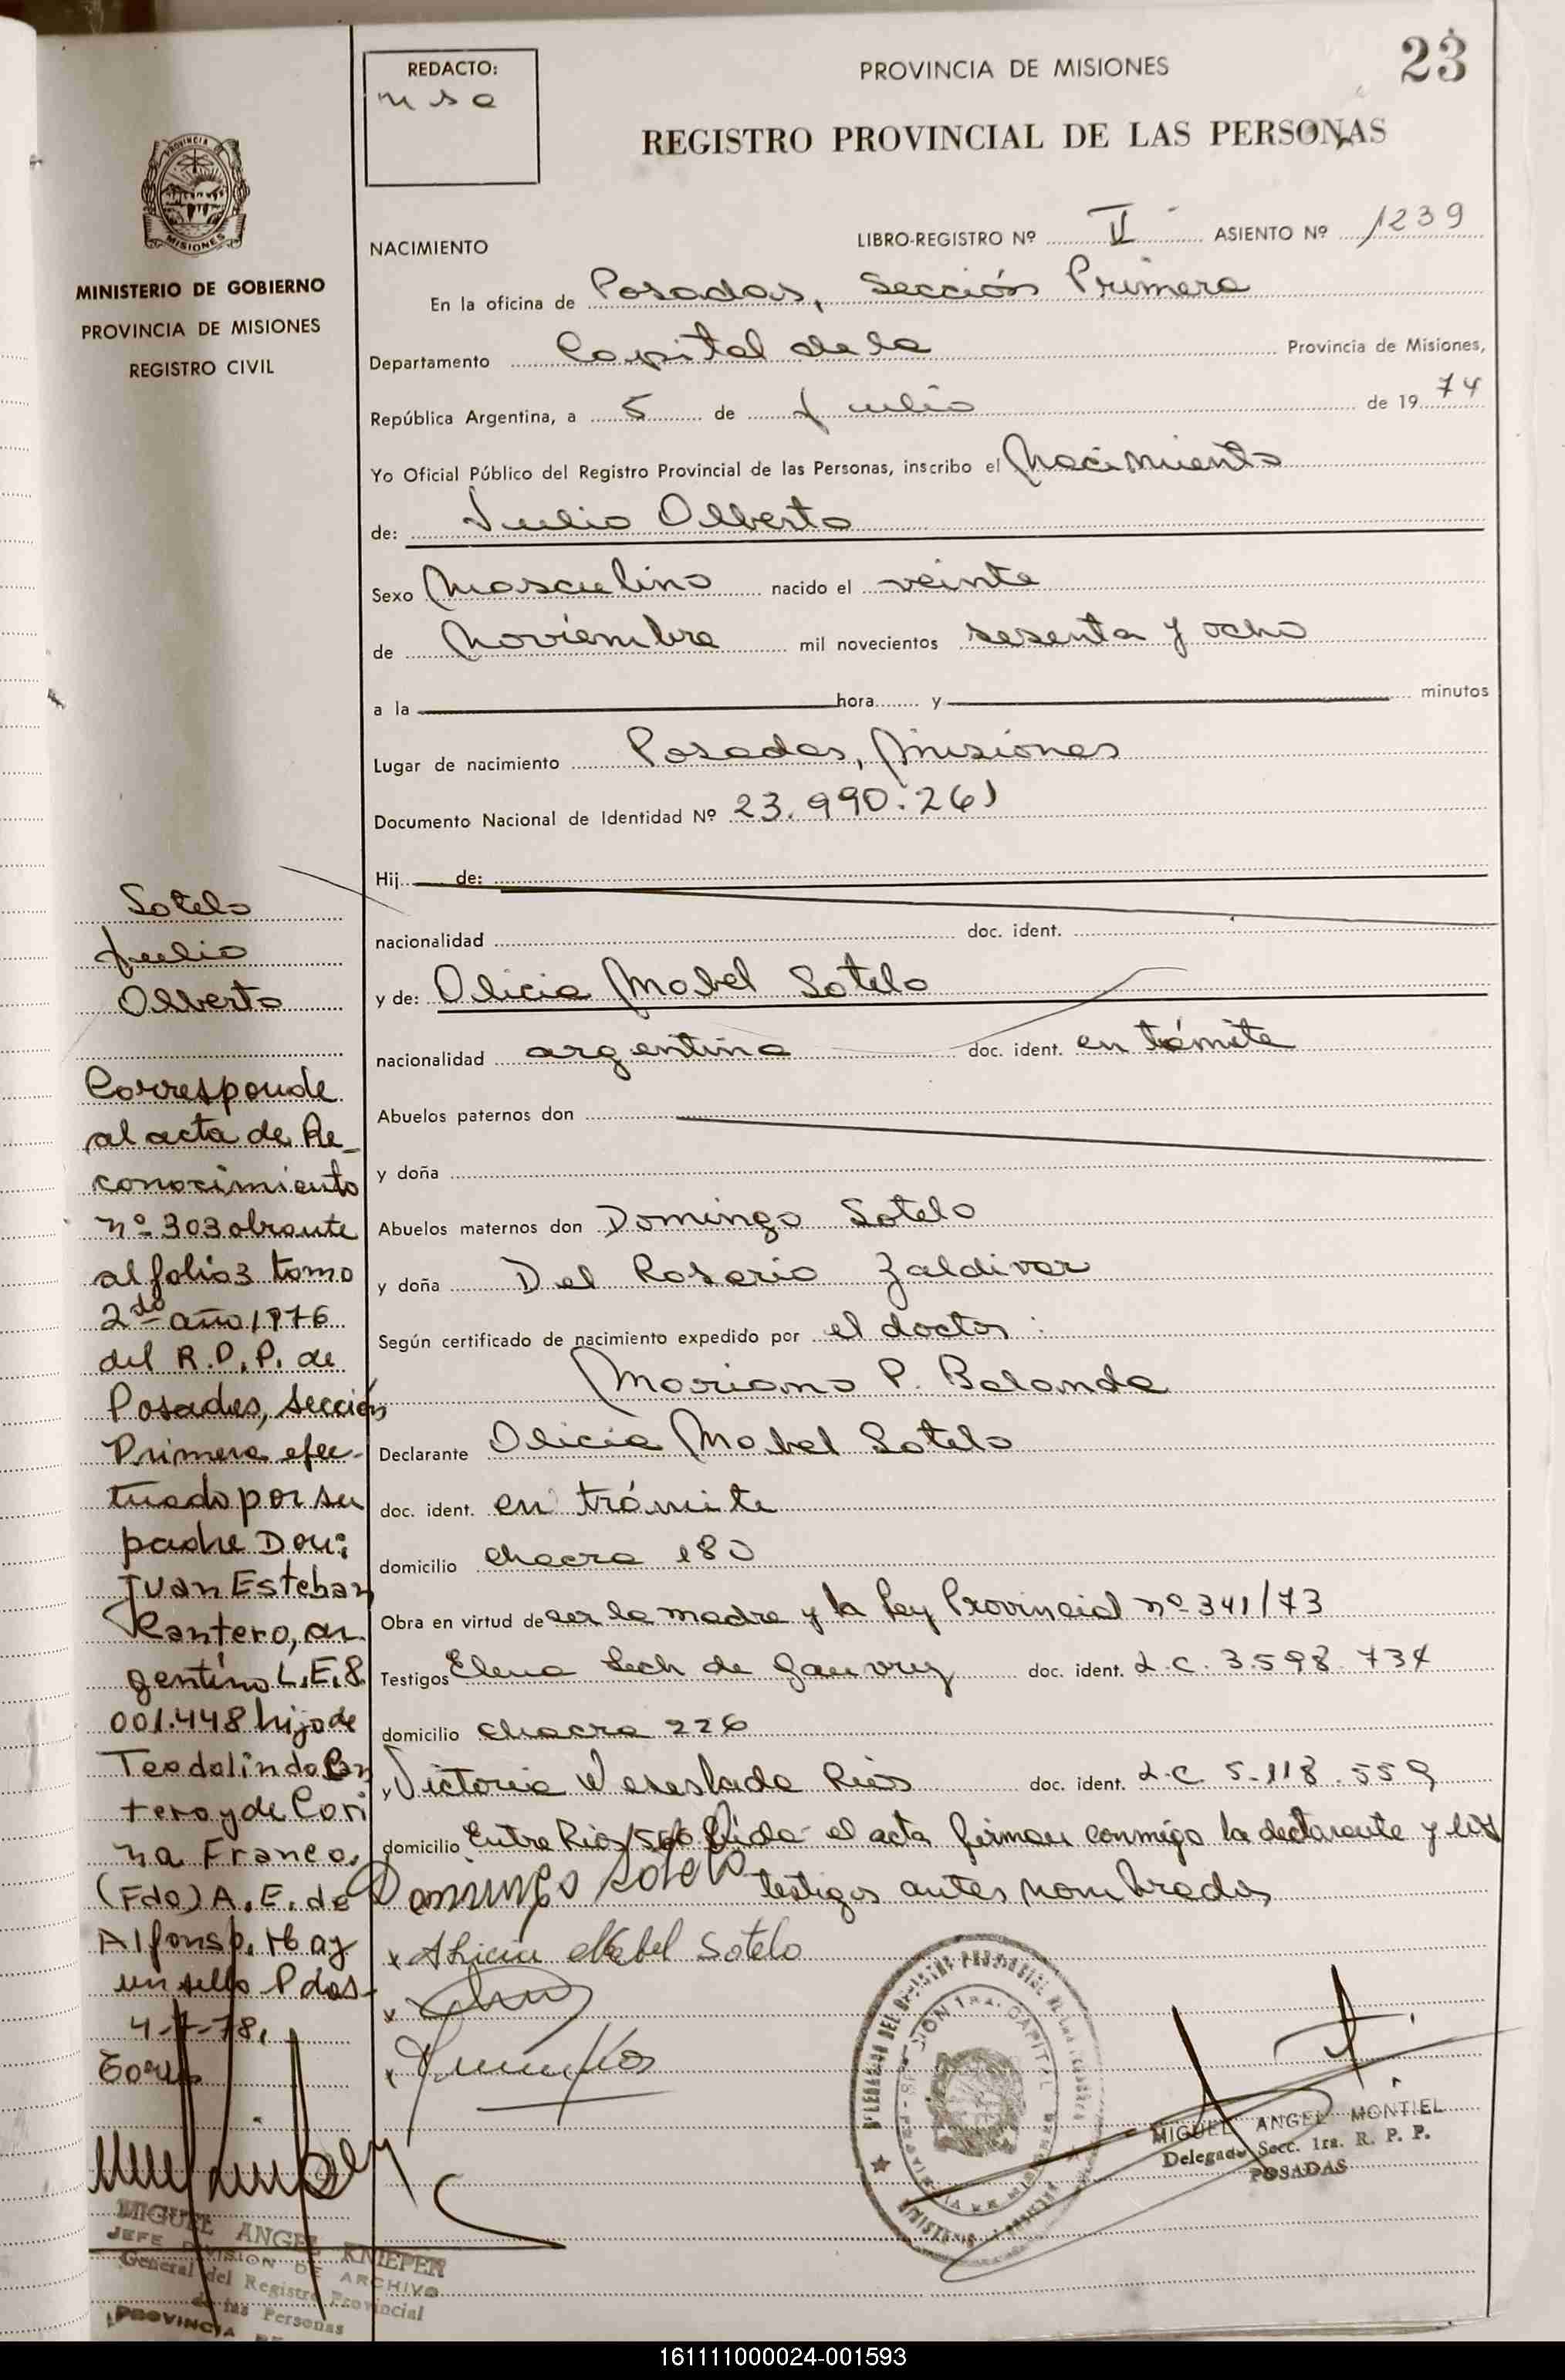 23
REDACTO:
PROVINCIA DE MISIONES
REGISTRO PROVINCIAL DE LAS PERSONAS
PROVINCIA DE
MISIONES
MINISTERIO DE GOBIERNO
PROVINCIA DE MISIONES
REGISTRO CIVIL
NACIMIENTO
LIBRO-REGISTRO Nº II ASIENTO Nº 1239
En la oficina de Posadas, Sección Primera
Departamento Capital de la Provincia de Misiones,
República Argentina, a 5 de Julio de 1974
Yo Oficial Público del Registro Provincial de las Personas, inscribo el Nacimiento
de: Julio Alberto
Sexo Masculino nacido el veinte
de Noviembre mil novecientos sesenta y ocho
a la hora y minutos
Lugar de nacimiento Posadas, Misiones
Documento Nacional de Identidad Nº 23.990.261
Hij de:
nacionalidad doc. ident.
y de: Alicia Mabel Sotelo
nacionalidad argentina doc. ident. en trámite
Abuelos paternos don
y doña
Abuelos maternos don Domingo Sotelo
y doña Del Rosario Zaldivar
Según certificado de nacimiento expedido por el doctor:
Mariano P. Balanda
Declarante Alicia Mabel Sotelo
doc. ident. en trámite
domicilio chacra 180
Obra en virtud de ser la madre y la Ley Provincial nº 341/73
Testigos Elena Lech de doc. ident. L.C. 3.598.734
domicilio chacra 226
y Victoria Rios doc. ident. L.C. 5.118.559
domicilio Entre Rios 560 Leida el acta firman conmigo la declarante y los
Domingo Sotelo testigos antes nombrados
x Alicia Mabel Sotelo
x
x
MIGUEL ANGEL MONTIEL
Delegado Secc. 1ra. R. P. P.
POSADAS
Sotelo
Julio
Alberto
Corresponde
al acta de Re
conocimiento
nº 303 obrante
al folio 3 tomo
2do año 1976
del R.P.P. de
Posadas, sección
Primera efec-
tuado por su
padre Don:
Juan Esteban
Cantero, ar
gentino L.E. 8
001.448 hijo de
Teodolindo Can
tero y de Cori
na Franco.
(Fdo) A. E. de
Alfonso. Hay
un sello Pdas-
4-7-78,
MIGUEL ANGEL KNIEPER
JEFE DIVISION DE ARCHIVO
General del Registro Provincial
de las Personas
PROVINCIA DE
161111000024-001593